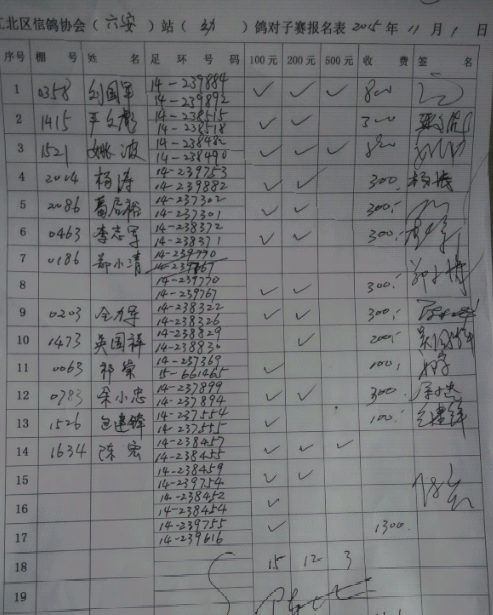 江北区信鸽协会（六安）站（幼）鸽对子赛报名表 2015年 11月 1日
序号 棚号 姓名 足环号码 100元 200元 500元 收费 签名
1 0358 刘国军 14-239884 ✓ ✓ ✓ 800
14-239892
2 1415 14-238515 ✓ ✓ 300
14-238518
3 1521 姚波 14-238492 ✓ ✓ ✓ 800
14-238490
4 2004 杨涛 14-239753 ✓ ✓ 300 杨涛
14-239882
5 2086 14-237302 ✓ ✓ 300
14-237301
6 0463 李志军 14-238372 ✓ ✓ 300
14-238371
7 0186 郑小清 14-239770
14-239767
8 14-239770 ✓ ✓ 300
14-239767
9 0203 14-238322 ✓ ✓ 300
14-238326
10 1473 吴国祥 14-238829 ✓ 200 吴国祥
14-238830
11 0063 14-237369 ✓ 100
15-661465
12 0783 余小忠 14-237899 ✓ ✓ 300 余小忠
14-237894
13 1526 包建锋 14-237554 ✓ 100 包建锋
14-237555
14 1634 陈宏 14-238457 ✓ ✓ ✓
14-238455
15 14-238459 ✓ ✓
14-239754
16 14-238452 ✓
14-238454
17 14-239755 ✓ 1300
14-239616
18 15 12 3
19